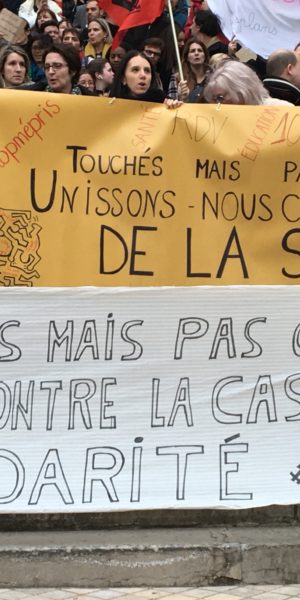 plans
stopmépris
SANTÉ
RDV
EDUCATION
TOUCHÉS MAIS PA
UNISSONS-NOUS C
DE LA S
S MAIS PAS C
ONTRE LA CAS
DARITÉ